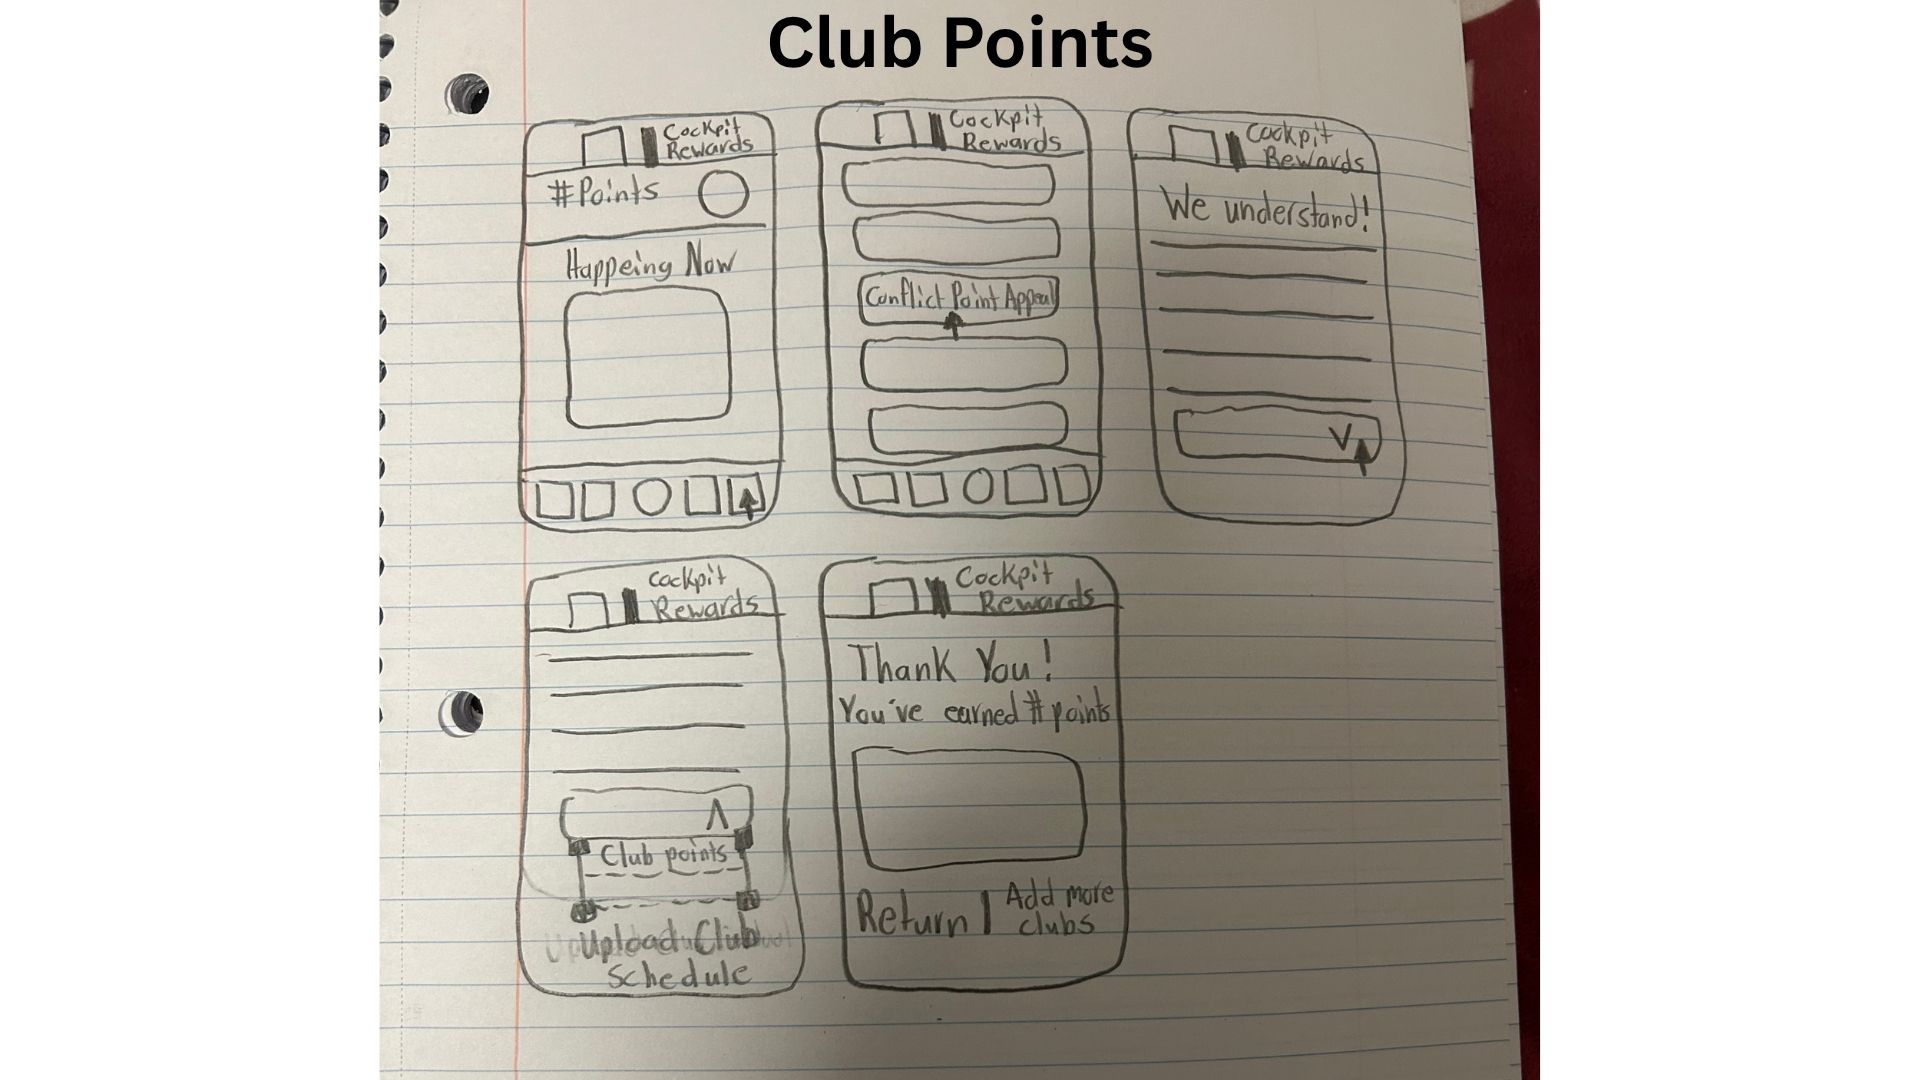 Club Points
Cockpit
Rewards
#Points
Happeing Now
Cockpit
Rewards
Conflict Point Appeal
Cockpit
Rewards
We understand!
V
Cockpit
Rewards
Club points
Upload Club
Schedule
Cockpit
Rewards
Thank You!
You've earned # points
Return | Add more
clubs